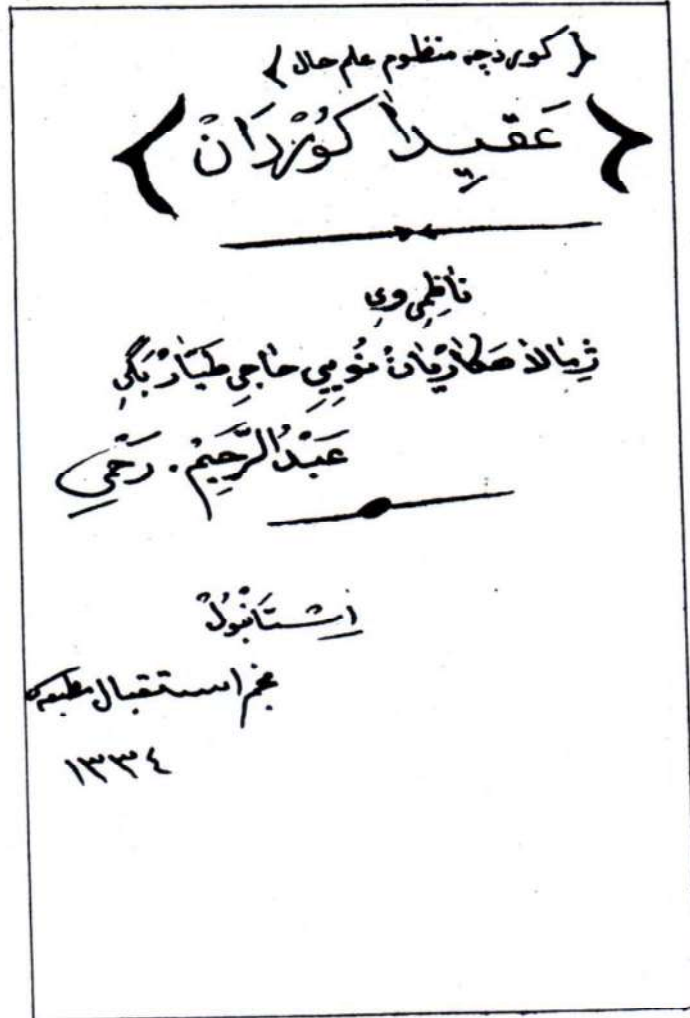 ﴿ كوردجه منظوم علم حال ﴾
﴿ عَقِيدا كُورْدَانْ ﴾
ناظِمِی وِی
ژِنالا حكارِیان نُوِیِی حاجِی طَیارْ بَگِی
عَبْدُالرَّحِیمْ . رَحْمِی
اِستَانْبُولْ
نجم استقبال مطبعه
١٣٣٤